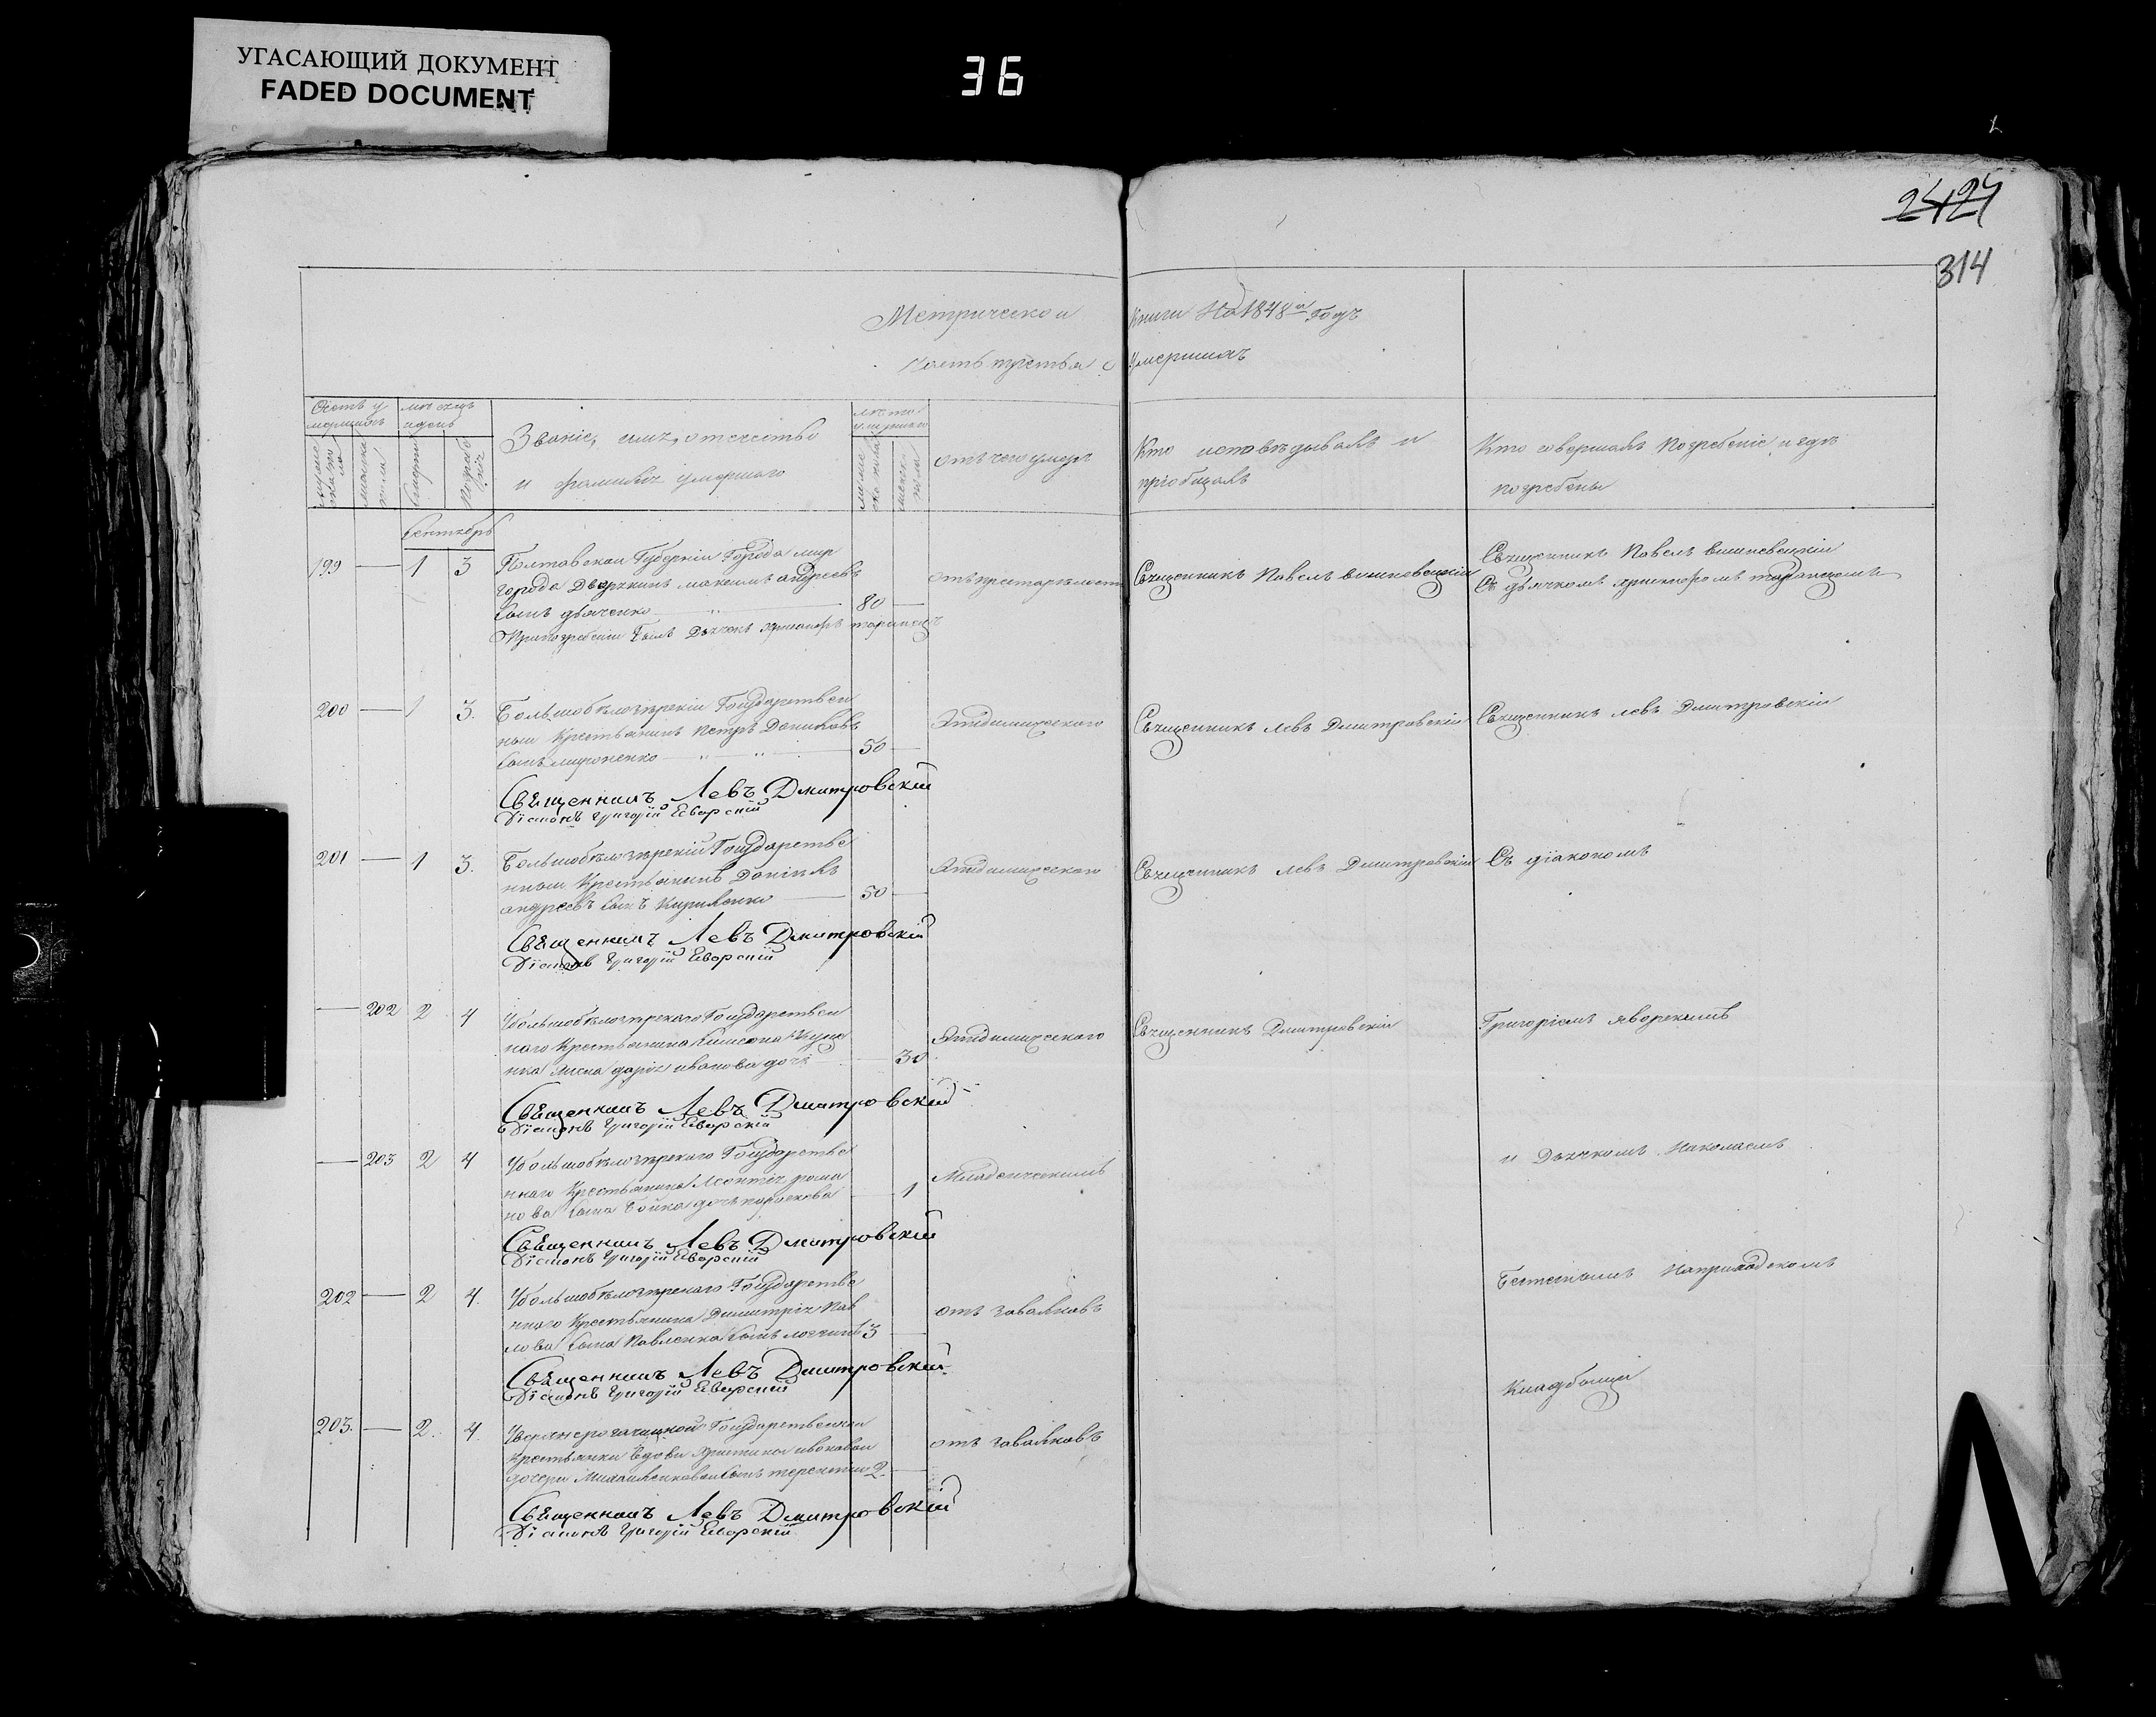 УГАСАЮЩИЙ ДОКУМЕНТ
FADED DOCUMENT
36
2424
314
Метрической книги На 1848й Годъ
Часть третья о умершихъ
Счетъ умершихъ
мѣсяцъ и день
Званіе, имя, отечество
и фамилія умершаго
лѣто умершаго
отъ чего умеръ
Кто исповѣдывалъ и
пріобщалъ
Кто совершалъ погребеніе и гдѣ
погребены
мужеска пола
женска пола
Смерти
погребенія
Сентябрь
199 — 1 3
Полтавской Губерніи Города мир
города Дворянинъ максимъ андреевъ
сынъ дьяченко 80 —
При погребеніи былъ Дьячекъ таранецъ
отъ престарѣлости
Священникъ Павелъ вишневецкій
Священникъ Павелъ вишневецкій
Съ дьячкомъ христофоромъ таранцомъ
200 — 1 3.
Большобѣлозѣрскій Государствен
ный Крестьянинъ Петръ Даниловъ
сынъ 50 —
Священникъ Левъ Дмитровскій
Діаконъ Григорій Яворскій
Священникъ левъ Дмитровскій
Священникъ левъ Дмитровскій
201 — 1 3.
Большобѣлозѣрскій Государстве
нный Крестьянинъ Даніилъ
андреевъ сынъ Кириленко 50
Священникъ Левъ Дмитровскій
Діаконъ Григорій Яворскій
Священникъ левъ Дмитровскій
Съ діакономъ
— 202 2 4
Убольшобѣлозѣрскаго Государствен
наго Крестьянина
жена дарія иванова дочь 30
Священникъ Левъ Дмитровскій
Діаконъ Григорій Яворскій
Священникъ Дмитровскій
Григоріемъ яворскимъ
— 203 2 4
Убольшобѣлозѣрскаго Государстве
ннаго Крестьянина Леонтія рома
нова сына Бойка дочь параскева 1
Священникъ Левъ Дмитровскій
Діаконъ Григорій Яворскій
Младенческимъ
и Дьячкомъ Николаемъ
202 — 2 4.
Убольшобѣлозѣрскаго Государстве
ннаго Крестьянина Димитрія Пав
лова сына Павленка сынъ логгинъ 3
Священникъ Левъ Дмитровскій
Діаконъ Григорій Яворскій
отъ завалковъ
На приходскомъ
203. — 2. 4.
Уверхнерогачицкой Государственной
крестьянки вдовы христины ивановой
дочери сынъ терентій 2.
Священникъ Левъ Дмитровскій
Діаконъ Григорій Яворскій
отъ завалковъ
Кладбищи